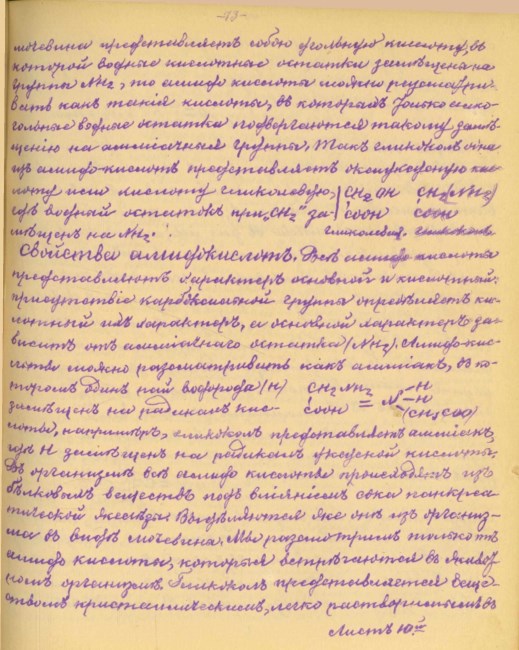 -73-
мочевина представляетъ собою угольную кислоту, въ
которой водные кислотные остатки замѣщены на
группы NH₂, то амидо кислоты можно разсматри
вать какъ такія кислоты, въ которыхъ только алко-
гольные водные остатки подвергаются такому замѣ-
щенію на амміачныя группы. Такъ гликоколъ одна
изъ амидо-кислотъ представляетъ оксиуксусную кис-
лоту или кислоту гликолевую, (CH₂OH CH₂(NH₂)
гдѣ водный остатокъ при „CH₂" за- COOH COOH
мѣщенъ на NH₂. гликолевая гликоколъ
Свойства амидокислотъ. Всѣ амидо кислоты
представляютъ характеръ основной и кислотный:
присутствіе карбоксильной группы опредѣляетъ ки-
слотный ихъ характеръ, а основной характеръ за-
виситъ отъ амміачнаго остатка (NH₂). Амидо-кис-
лоты можно разсматривать какъ амміакъ, въ ко-
торомъ одинъ пай водорода (H) CH₂NH₂ = N -H
замѣщенъ на радикалъ кис- COOH -H
лоты, напримѣръ, гликоколъ представляетъ амміакъ, -(CH₃COO)
гдѣ H замѣщенъ на радикалъ уксусной кислоты.
Въ организмѣ всѣ амидо кислоты происходятъ изъ
бѣлковыхъ веществъ подъ вліяніемъ сока панкреа-
тической железы. Выдѣляются же онѣ изъ организ-
ма въ видѣ мочевины. Мы разсмотримъ только тѣ
амидо кислоты, которыя встрѣчаются въ живот-
номъ организмѣ. Гликоколъ представляется веще-
ствомъ кристаллическимъ, легко растворимымъ въ
Листъ 10й